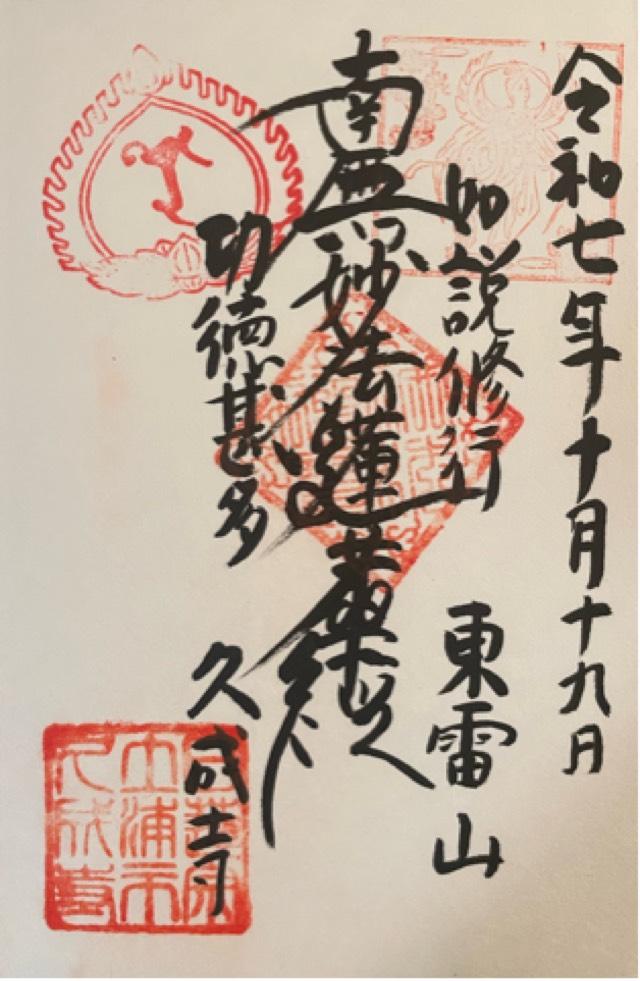 令和七年十月十九日
如説修行
東雷山
南無妙法蓮華経
功徳甚多
久成寺
土浦市
久成寺